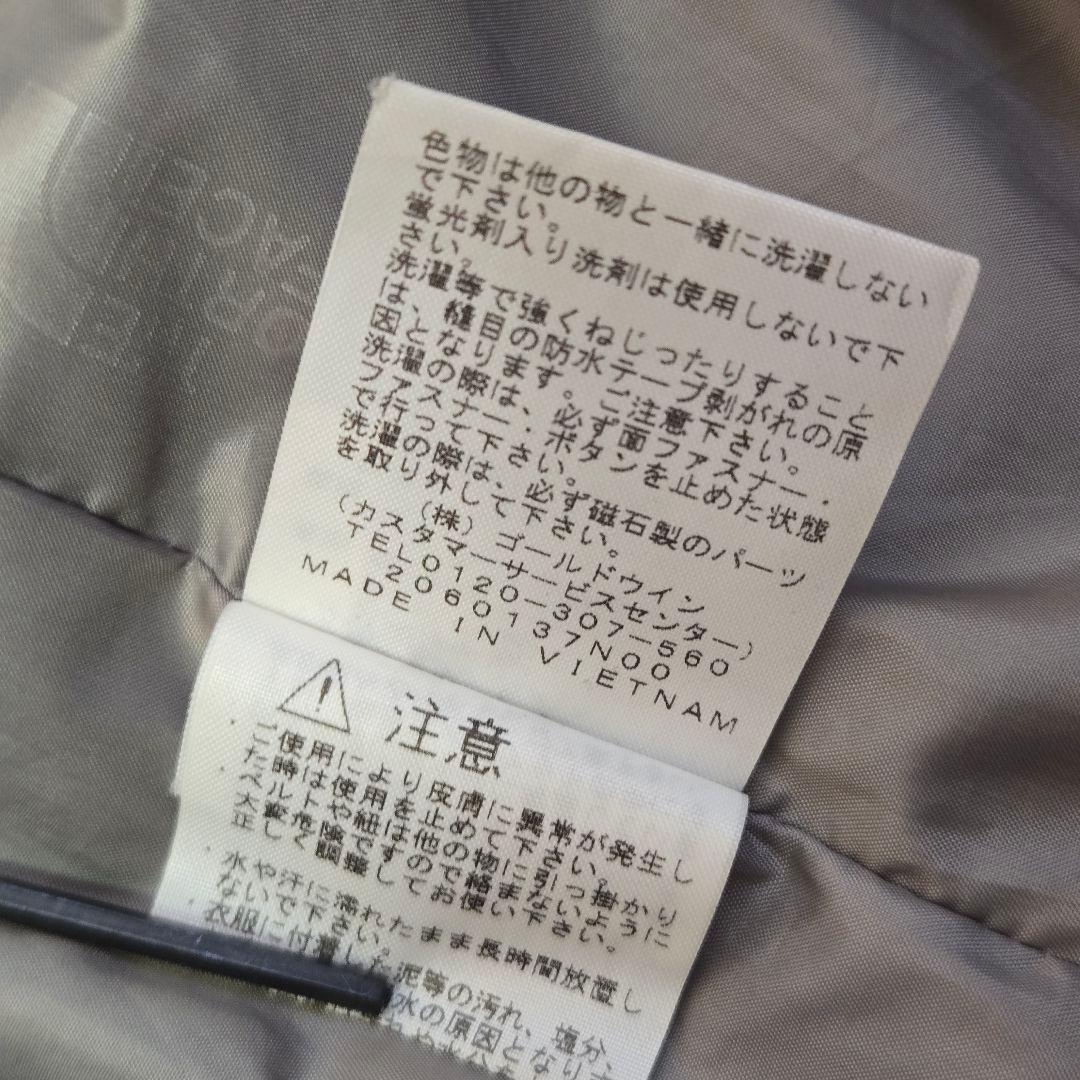 色物は他の物と一緒に洗濯しない
で下さい。
蛍光剤入り洗剤は使用しないで下
さい。
洗濯等で強くねじったりすること
は、縫目の防水テープ剥がれの原
因となります。ご注意下さい。
洗濯の際は、必ず面ファスナー．
ファスナー．ボタンを止めた状態
で行って下さい。
洗濯の際は、必ず磁石製のパーツ
を取り外して下さい。
（株）ゴールドウイン
（カスタマーサービスセンター）
TEL0120−307−560
2060137N00
MADE IN VIETNAM
注意
・ご使用により皮膚に異常が発生し
た時は使用を止めて下さい。
・ベルトや紐は他の物に引っ掛かり
大変危険ですので絡まないように
正しく調整してお使い下さい。
・水や汗に濡れたまま長時間放置し
ないで下さい。
・衣服に付着した泥等の汚れ、塩分、
水の原因となりま